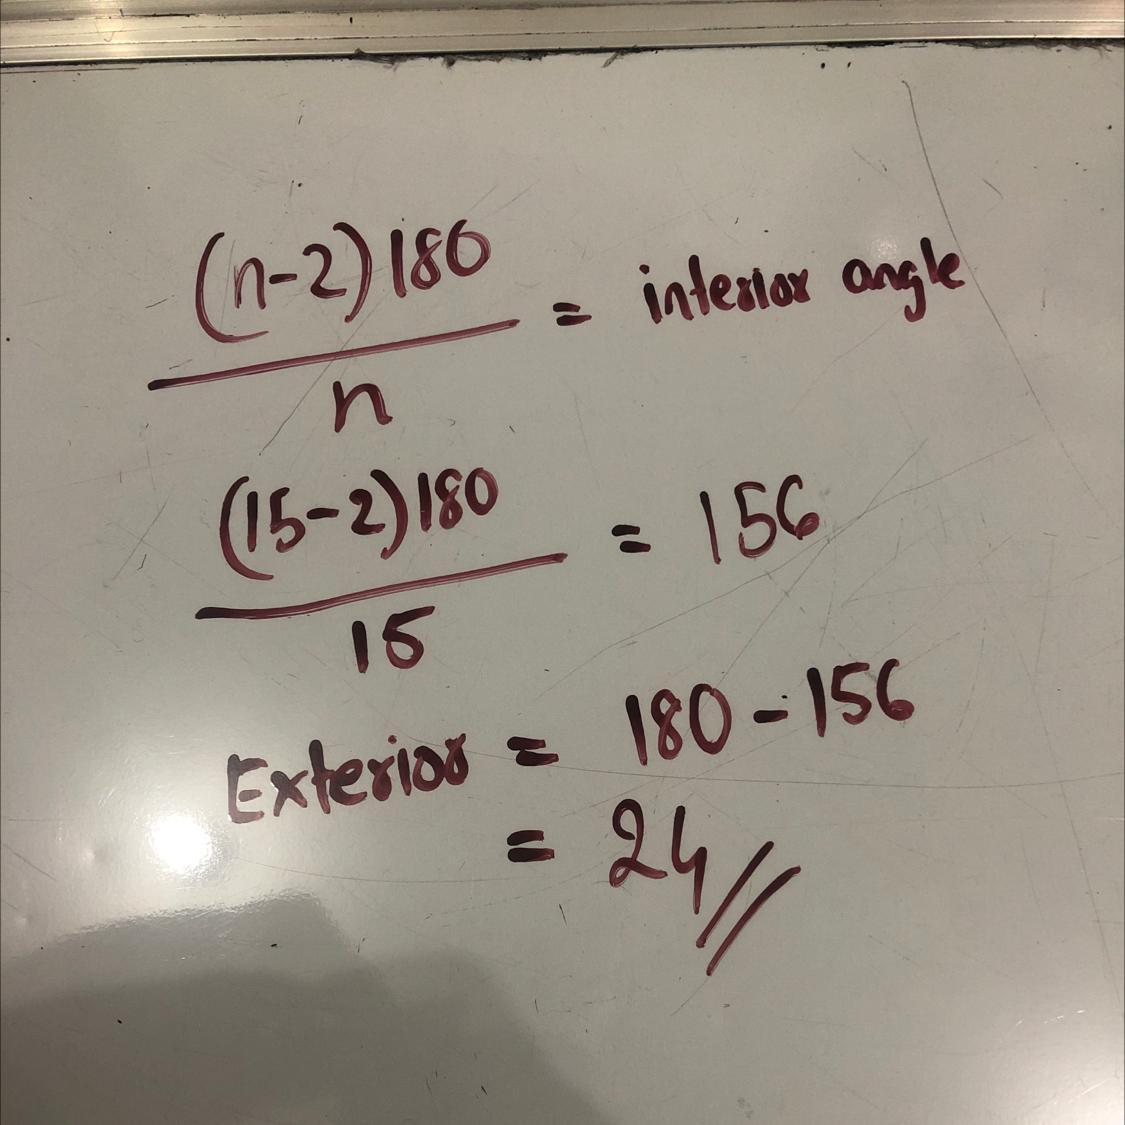 (n-2)180
n
= interior angle
(15-2)180
15
= 156
Exterior = 180 - 156
= 24//